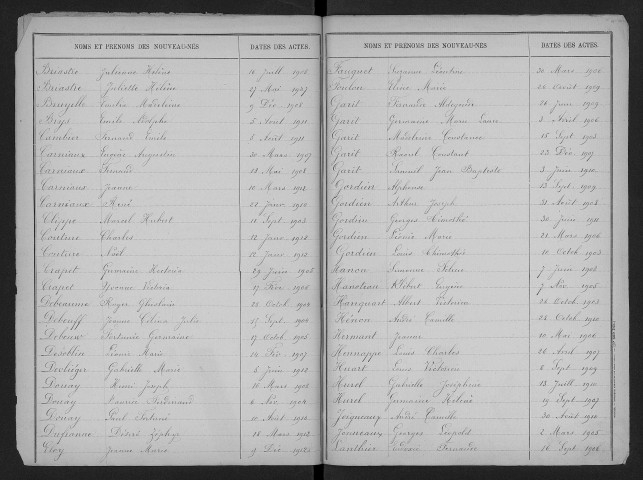 NOMS ET PRÉNOMS DES NOUVEAU-NÉS DATES DES ACTES.
Briastre Julienne Hélène Juill 1906
Briastre Juliette Hélène 27 Mai 1907
Bruyelle Emilie Madeleine 9 Déc. 1908
Buys Emile Adolphe 5 Aout 1911
Cambier Fernand Emile Aout 1911
Carniaux Eugène Augustin 30 Mars 1907
Carniaux Fernand Mai 1908
Carniaux Jeanne 10 Mars 1912
Carniaux René Janv 1910
Clippe Marcel Hubert 11 Sept 1903
Contine Charles 12 Janv 1910
Contine Noël 12 Janv 1910
Crapet Germaine 29 Juin 1905
Crapet Yvonne 17 Fév 1908
Debeaumé Roger Ghislain 22 Octob 1904
Debeuff Jeanne Célina Julia 17 Sept 1906
Deboux Fortunée Germaine 17 Octob 1905
Desoblin Léonie Marie 14 Fév. 1907
Gabrielle Marie 5 Juin 1912
Douay Henri Joseph 16 Mars 1908
Douay Maurice Ferdinand 6 Nov. 1904
Douay Paul 10 Aout 1912
Désiré Zéphyr 18 Mars 1912
Eloy Jeanne Marie 9 Déc 1912
NOMS ET PRÉNOMS DES NOUVEAU-NÉS DATES DES ACTES.
Fauquet Suzanne 30 Mars 1906
Foulon Elise Marie 26 Aout 1909
Garit Fernande Juin 1909
Garit Germaine Marie Laure 3 Avril 1906
Garit Madeleine Constance 18 Sept 1903
Garit Raoul Constant 23 Déc. 1907
Garit Samuel Jean Baptiste 3 Juin 1910
Gordien Alphonse 13 Sept 1909
Gordien Arthur Joseph 31 Aout 1903
Gordien Georges Timothé 30 Juin 1911
Gordien Léonie Marie 21 Mars 1906
Gordien Louis Thimothé 10 Octob 1903
Hanon 7 Juin 1903
Hanoteau Eugène 7 Nov. 1905
Hanquart Albert 28 Octob 1903
Hénon André Camille 28 Octob 1910
Hermant Jeanne 10 Mai 1906
Hennappe Louis Charles 26 Avril 1907
Huart Louis 6 Sept 1909
Hurel Gabrielle Joséphine 18 Juill 1910
Hurel Germaine 19 Sept 1907
Jacqueaux André Camille 30 Aout 1910
Jonneaux Georges Léopold 2 Mars 1905
Lanthier Fernande 16 Sept 1906